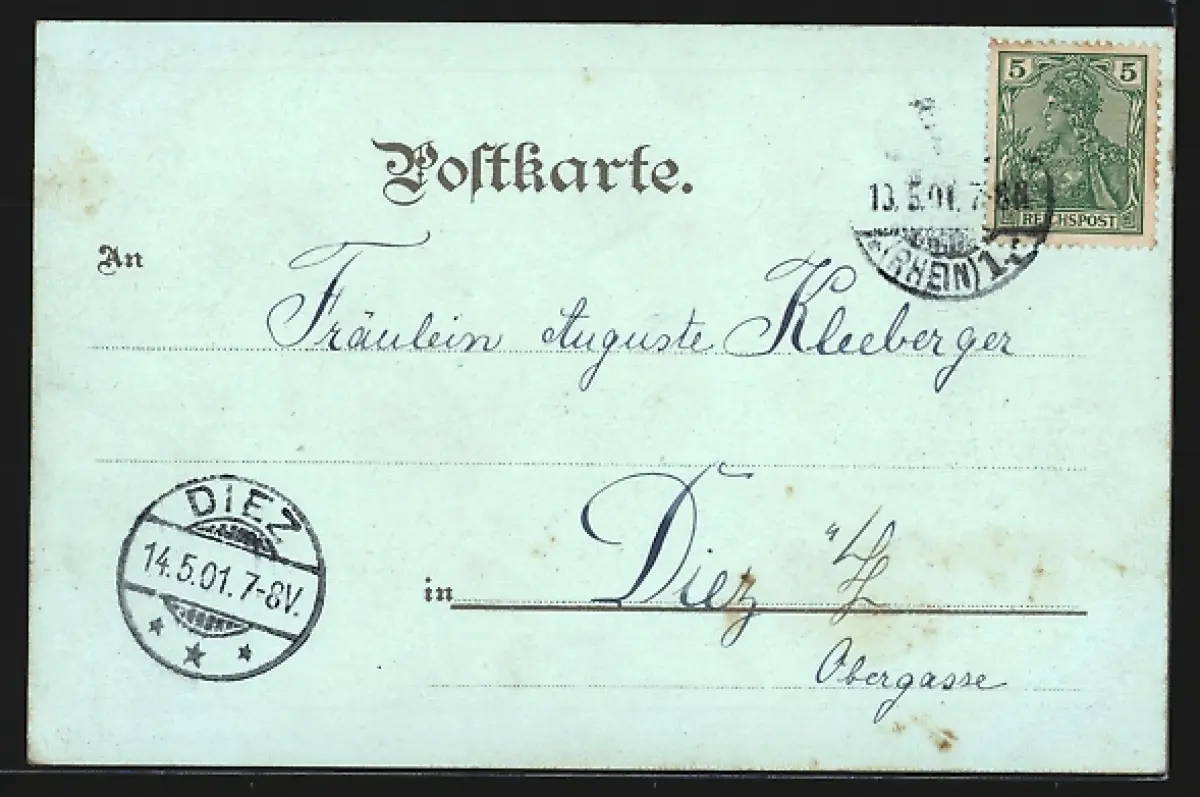 5 5
REICHSPOST
Postkarte.
13.5.01.7-8N.
* (RHEIN) 1.
An
Fräulein Auguste Kleeberger
DIEZ
14.5.01.7-8V.
in Diez a/L
Obergasse